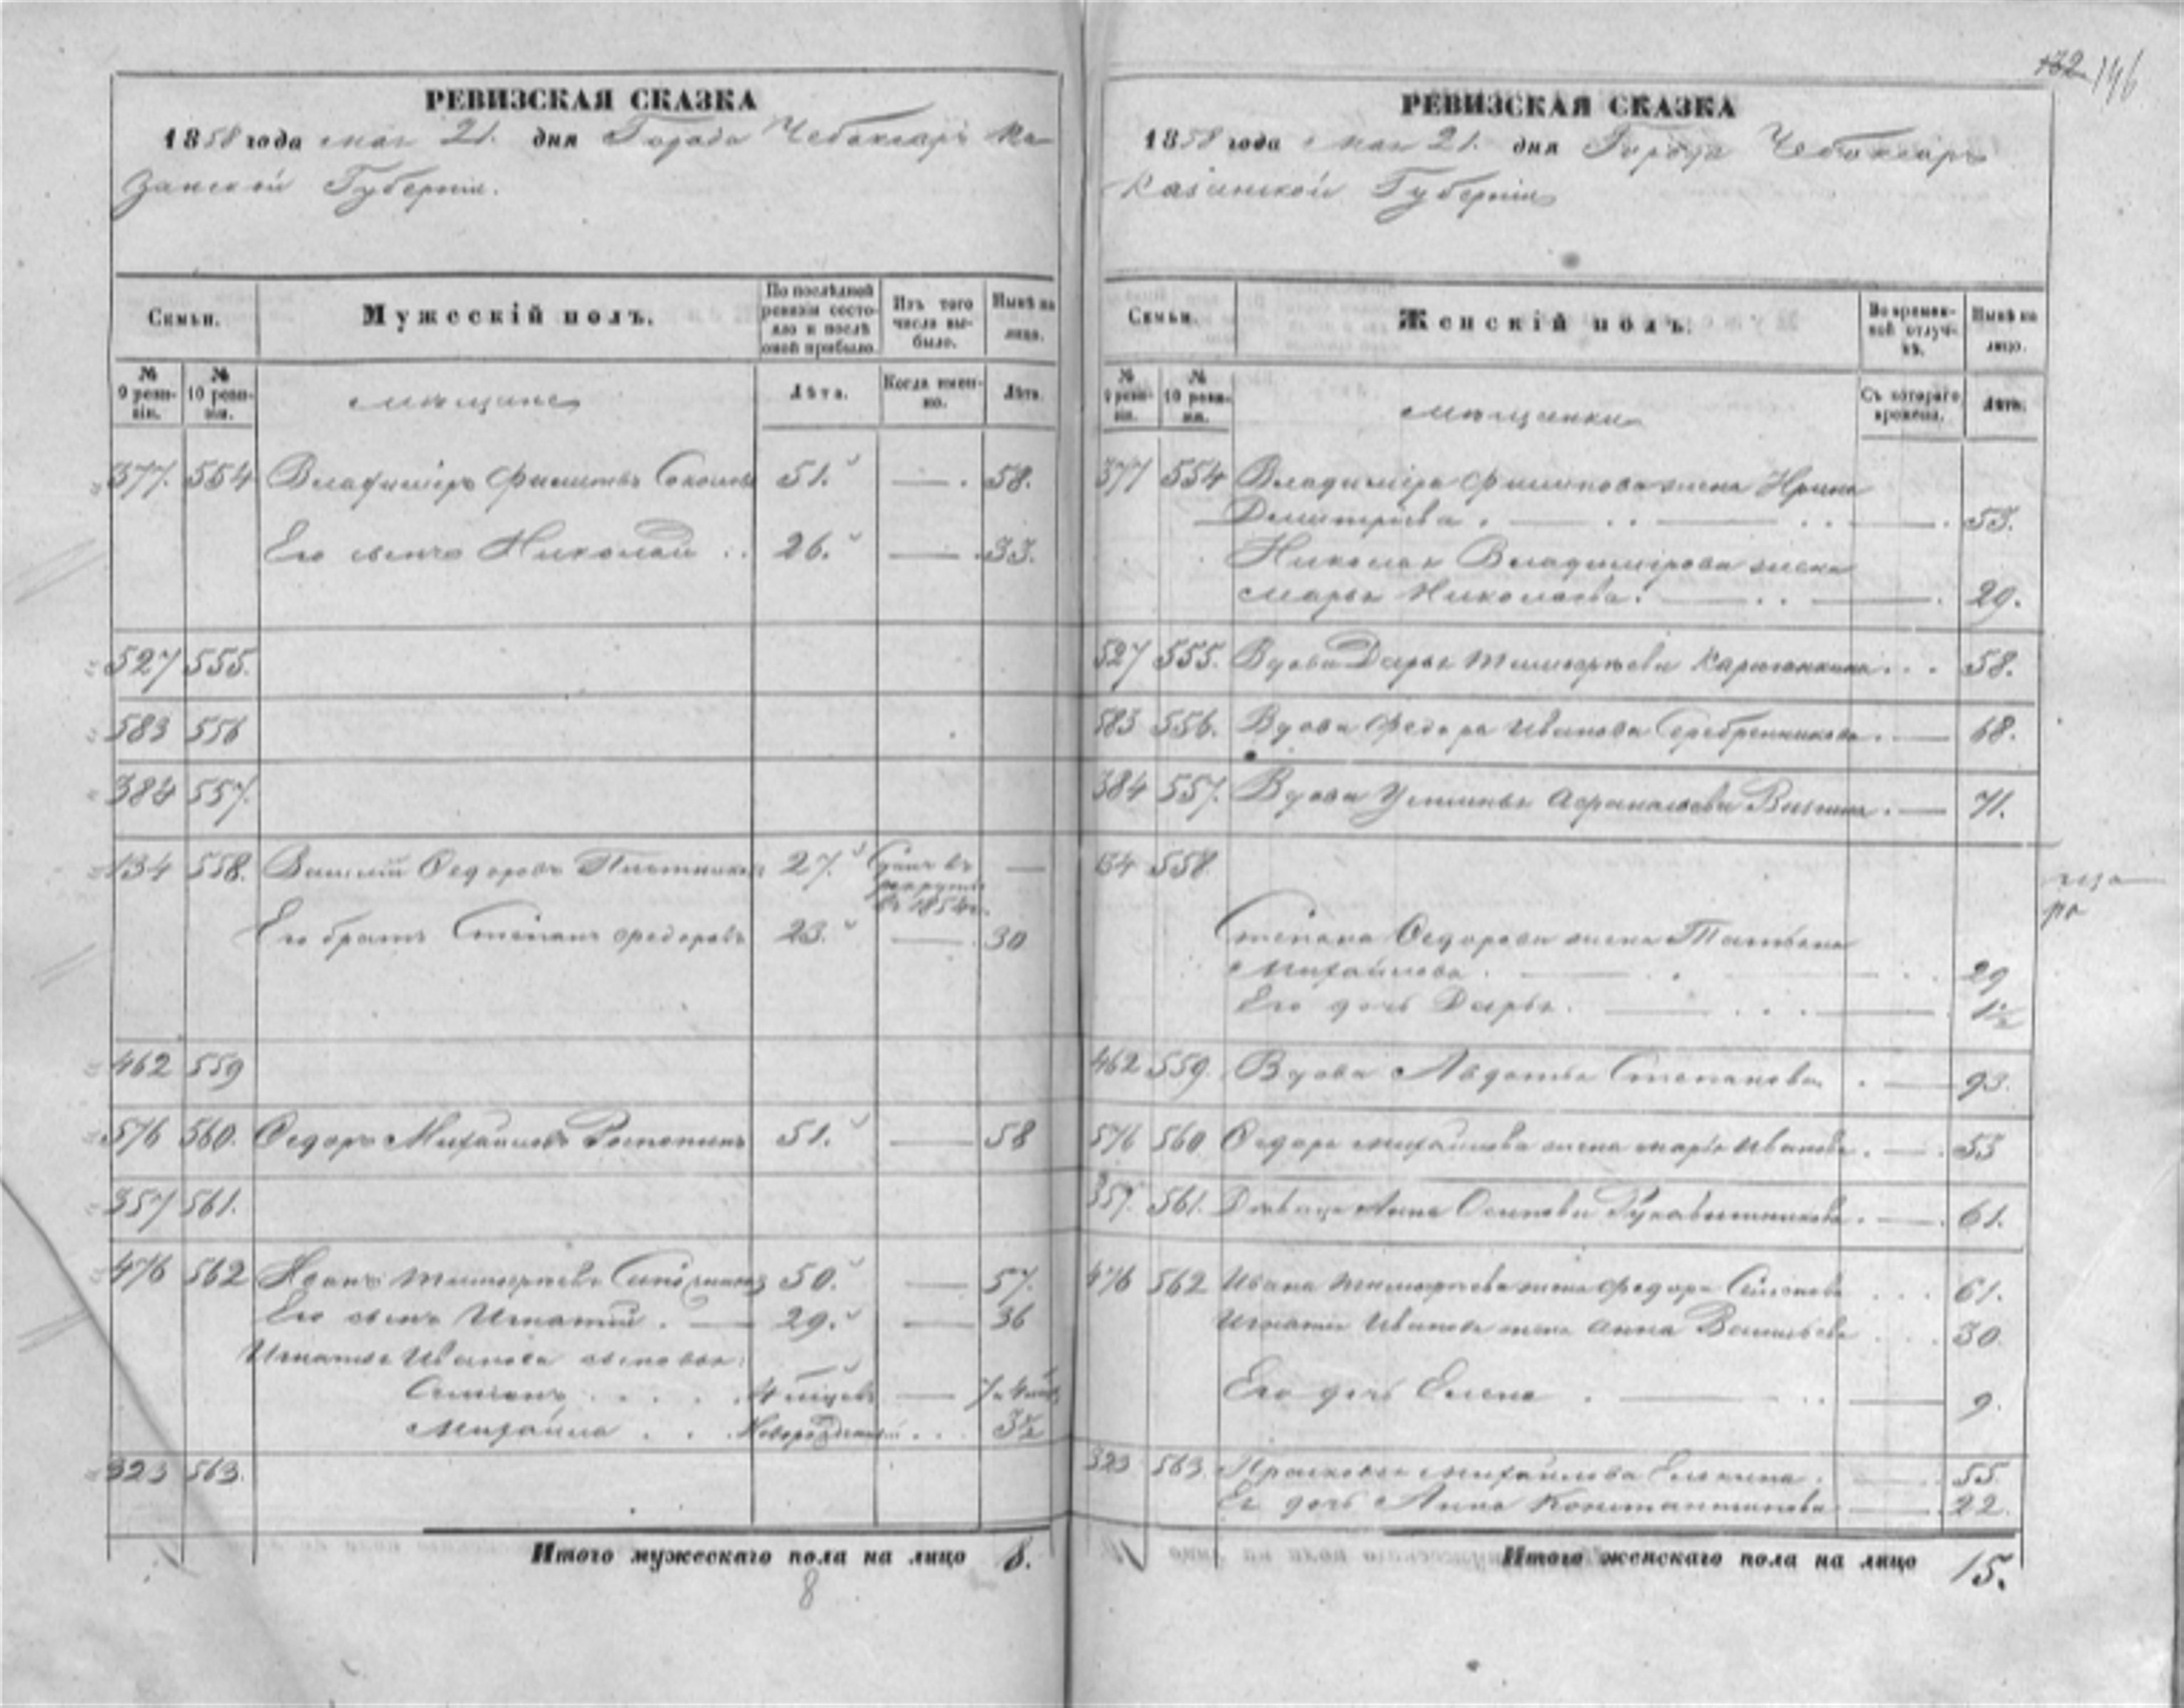 132 146
РЕВИЗСКАЯ СКАЗКА
1858 года мая 21. дня Города Чебоксаръ Ка-
занской Губерніи.
Семьи.
Мужескій полъ.
По послѣдней ревизіи состояло и послѣ оной прибыло.
Изъ того числа выбыло.
Нынѣ на лицо.
№ 9 ревизіи.
№ 10 ревизіи.
мѣщане
Лѣта.
Когда именно.
Лѣта.
377. 554 Владиміръ Филиповъ Соколовъ 51. — 58.
Его сынъ Николай 26. — 33.
527 555.
583 556
384 557.
134 558. Василій Федоровъ 27. Сданъ въ рекруты въ 1854 г. —
Его братъ Степанъ Федоровъ 23. — 30
462 559
576 560. Федоръ Михайловъ 51. — 58
357 561.
476 562 Иванъ Тимофѣевъ 50. — 57.
Его сынъ Игнатій. — 29. — 36
Игнатья Иванова сыновья:
Семенъ . . . . 4 мѣсяц. — 7
Михайла . . . Новорожденный . . . 3½
323 563.
Итого мужескаго пола на лицо 8.
8
РЕВИЗСКАЯ СКАЗКА
1858 года мая 21. дня Города Чебоксаръ
Казанской Губерніи
Семьи.
Женскій полъ.
Во временной отлучкѣ.
Нынѣ на лицо.
№ 9 ревизіи.
№ 10 ревизіи.
мѣщанки
Съ котораго времени.
Лѣта.
377 554 Владиміра Филипова жена Ирина
Дмитріева. — 53.
Николая Владимірова жена
Марья Николаева. — 29.
527 555. Вдова Дарья Тимофѣева 58.
583 556. Вдова Федора Иванова Серебренникова. — 68.
384 557. Вдова Устинья 71.
134 558
Степана Федорова жена Татьяна
Михайлова. — 29
Его дочь Дарья. — 1½
462 559. Вдова Авдотья Степанова — 93.
576 560 Федора Михайлова жена Марья Иванова. — 53
357. 561. Дѣвица Анна Осипова Рукавишникова. — 61.
476 562 Ивана Тимофѣева жена Федора Семенова . . . 61.
Игнатья Иванова жена Анна Васильева . . . 30.
Его дочь Елена — 9.
323 563. Прасковья Михайлова — 55.
Ея дочь Анна Константинова — 22.
Итого женскаго пола на лицо 15.